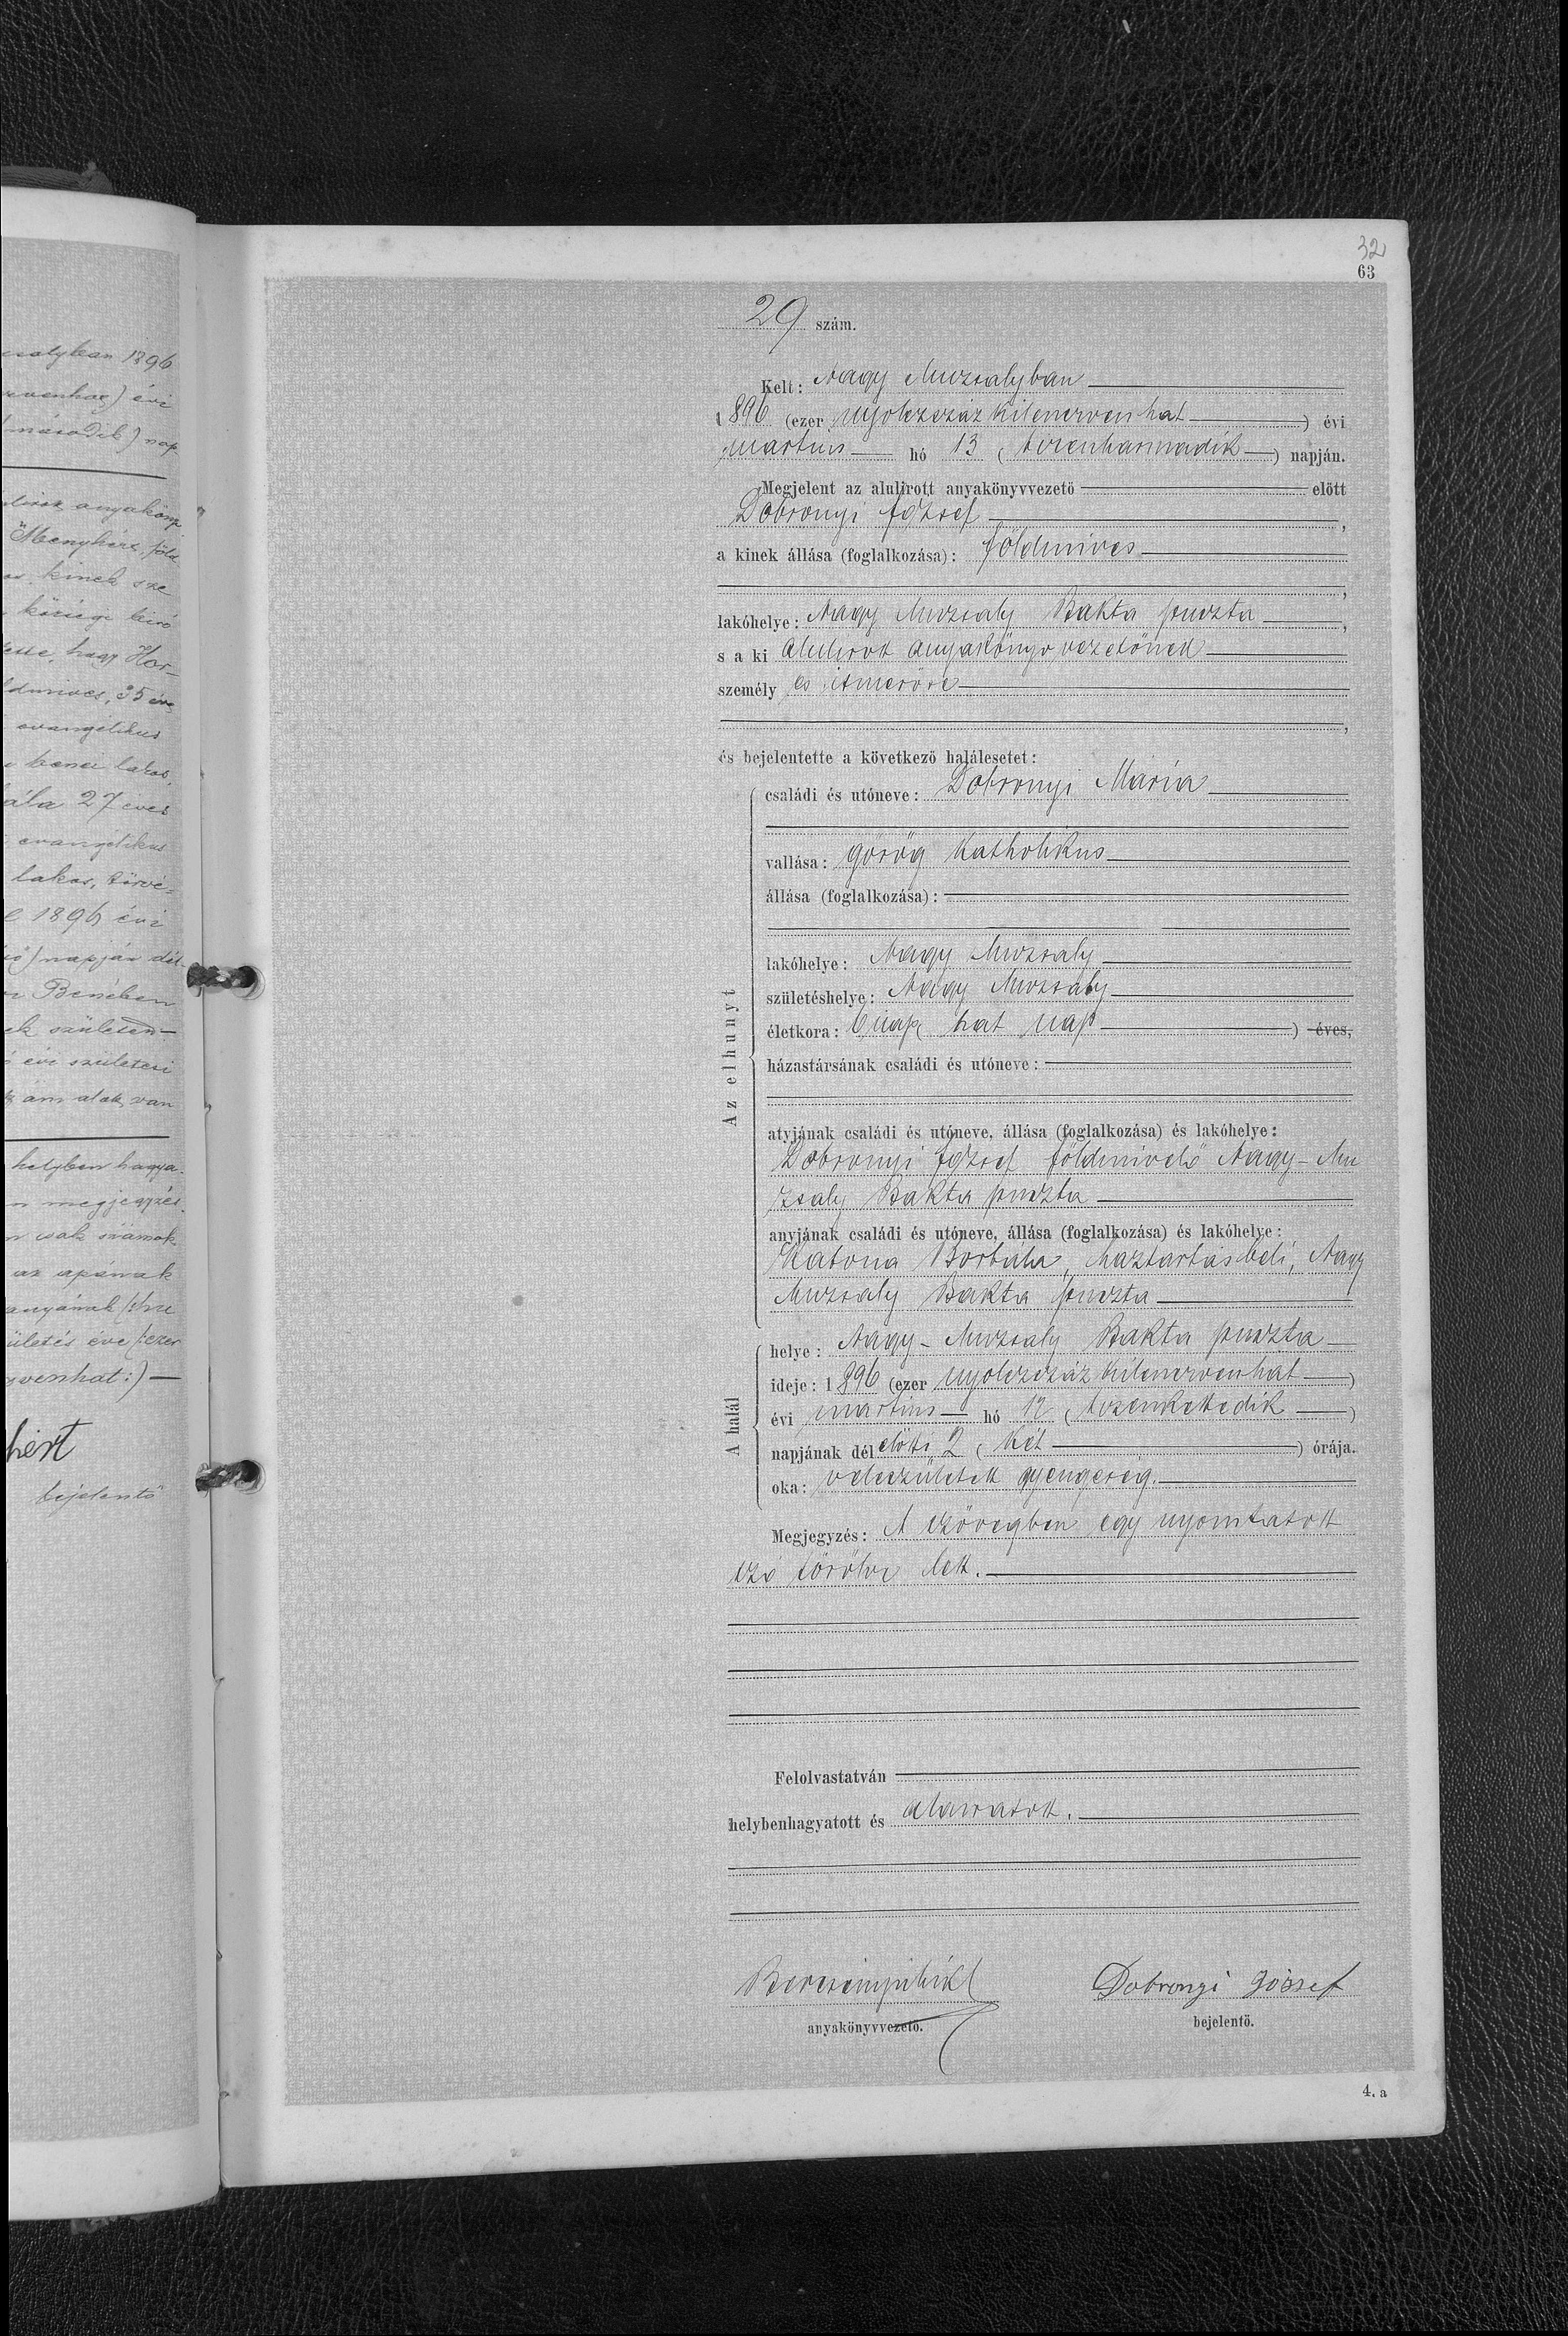 32
63
29 szám.
Kelt: Nagy Muzsalyban
1896 (ezer nyolczszáz kilenczvenhat) évi
martius hó 13 (tizenharmadik) napján.
Megjelent az alulirott anyakönyvvezetö elött
Dobronyi József,
a kinek állása (foglalkozása): földmives
,
lakóhelye: Nagy Muzsaly Bakta puszta,
s a ki alulirott anyakönyvvezetőnek
személyes ismerőse
,
és bejelentette a következő halálesetet:
Az elhunyt
családi és utóneve: Dobronyi Mária
vallása: görög katholikus
állása (foglalkozása):
lakóhelye: Nagy Muzsaly
születéshelye: Nagy Muzsaly
életkora: 6 nap (hat nap) éves,
házastársának családi és utóneve:
atyjának családi és utóneve, állása (foglalkozása) és lakóhelye:
Dobronyi József földmivelő Nagy-Mu
zsaly Bakta puszta
anyjának családi és utóneve, állása (foglalkozása) és lakóhelye:
Katona Borbála, háztartásbeli, Nagy
Muzsaly Bakta puszta
A halál
helye: Nagy-Muzsaly Bakta puszta
ideje: 1896 (ezer nyolczszáz kilenczvenhat)
évi martius hó 12 (tizenkettedik)
napjának délelőtti 2 (két) órája.
oka: veleszületett gyengeség.
Megjegyzés: A szövegben egy nyomtatott
szó törölve lett.
Felolvastatván
helybenhagyatott és aláiratott.
Dobronyi József
anyakönyvvezető.
bejelentő.
4. a
csalyban 1896
évi
nap
anyakönyv
Menyhért, föld
kinek sze
községi biró
hogy Hor-
35 éves
evangélikus
benei lakos,
27 éves
evangélikus
lakos, törvé-
1896 évi
napján dél-
Benében
születési
évi születési
alatt van
helyben hagya-
megjegyzés
csak számok
az apának
anyának
születés éve (:ezer
venhat:)
hért
bejelentő